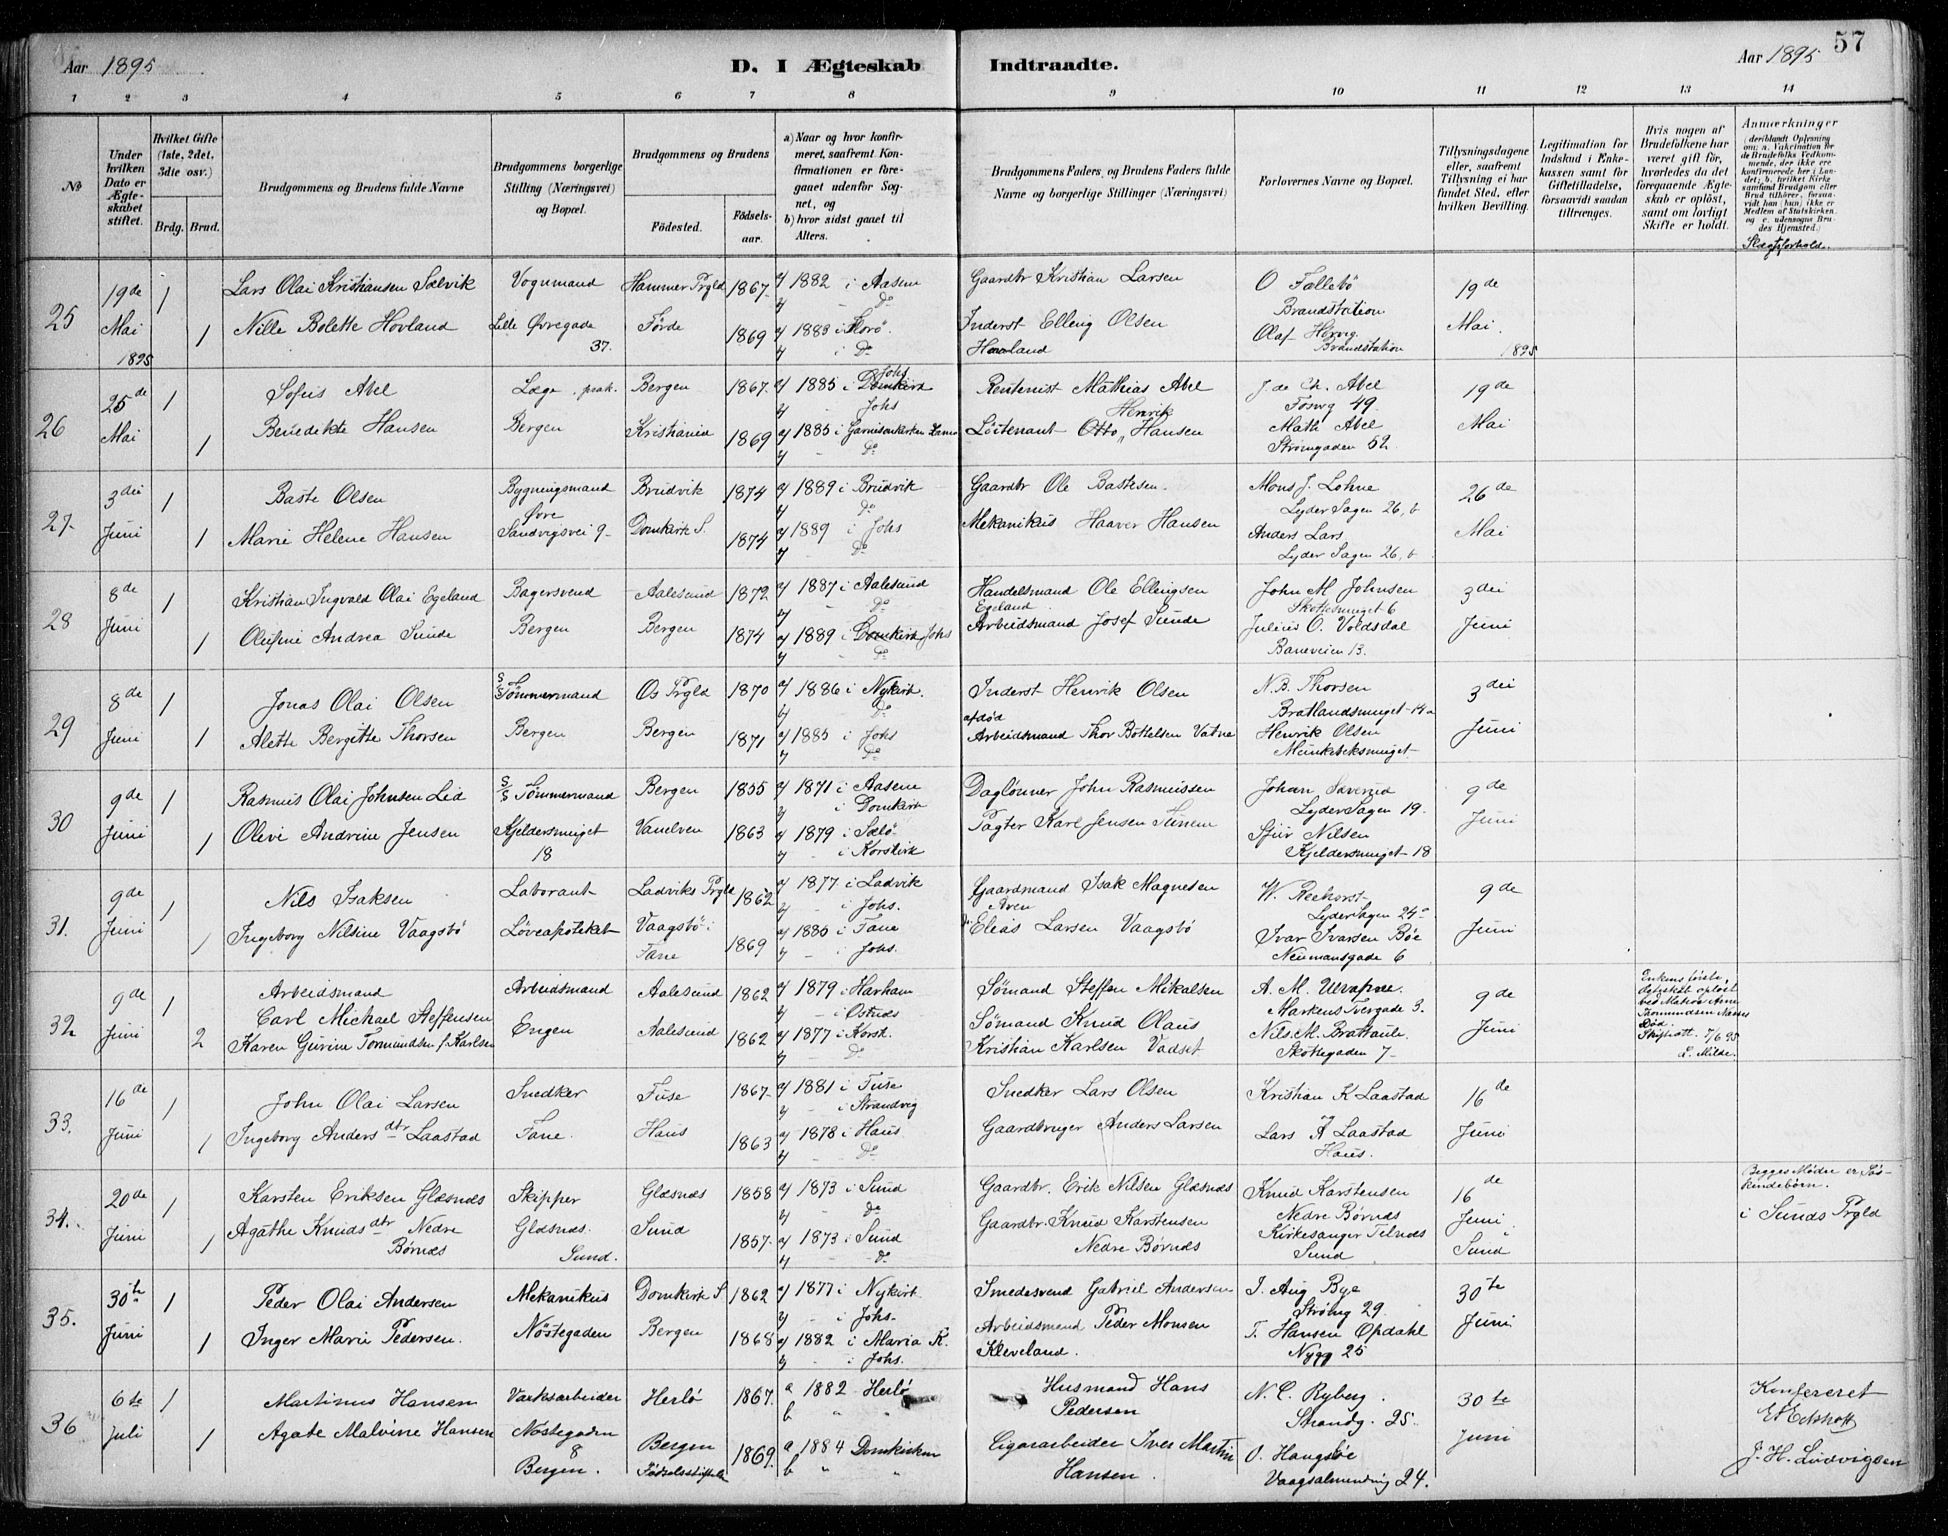 57
Aar 1895
D. I Ægteskab Indtraadte.
Aar 1895
1 2 3 4 5 6 7 8 9 10 11 12 13 14
No
Under hvilken Dato er Ægteskabet stiftet.
Hvilket Gifte (1ste, 2det, 3die osv.)
Brdg. Brud.
Brudgommens og Brudens fulde Navne
Brudgommens borgerlige Stilling (Næringsvei) og Bopæl.
Brudgommens og Brudens
Fødested.
Fødselsaar.
a) Naar og hvor konfirmeret, saafremt Konfirmationen er foregaaet udenfor Sognet, og
b) hvor sidst gaaet til Alters.
Brudgommens Faders, og Brudens Faders fulde Navne og borgerlige Stillinger (Næringsvei)
Forlovernes Navne og Bopæl.
Tillysningsdagene eller, saafremt Tillysning ei har fundet Sted, efter hvilken Bevilling.
Legitimation for Indskud i Enkekassen samt for Giftetilladelse, forsaavidt saadan tiltrænges.
Hvis nogen af Brudefolkene har været gift før, hvorledes da det foregaaende Ægteskab er opløst, samt om lovligt Skifte er holdt.
Anmærkninger
(deriblandt Oplysning om: a. Vakcination for de Brudefolks Vedkommende, der ikke ere konfirmerede her i Landet; b. hvilket Kirkesamfund Brudgom eller Brud tilhører, forsaavidt han (hun) ikke er Medlem af Statskirken, og c. udensogns Brudes Hjemsted.)
Slægtsforhold.
25 19de Mai 1895 1 1
Lars Olai Kristiansen Sælvik Vognmand Hammer Prgld 1867 a/ 1882 i Aasene b/ Do Gaardbr Kristian Larsen O Follebø Brandstation 19de
Nille Bolette Hovland Lille Øvregade 37. Førde 1869 a/ 1883 i Florø b/ i Do Inderst Elling Olsen Hovland Olaf Hervig Brandstation Mai 1895
26 25de Mai 1 1
Sofus Abel Læge, prak. Bergen 1867 a/ 1885 i Domkirk Johs b/ - Johs Rentenist Mathias Abel J. de Ch. Abel Fosvg 49. 19de
Benedikte Hansen Bergen Kristiania 1869 a/ 1885 i Garnisonkirken b/ - Do Løitenant Otto Henrik Hansen Math Abel Strømgaden 52. Mai
27 3die Juni 1 1
Baste Olsen Bygningsmand Brudvik 1874 a/ 1889 i Brudvik b/ Do Gaardbr Ole Bastesen Mons J. Lohne Lyder Sagen 26, b 26de
Marie Helene Hansen Øvre Sandvigsvei 9 Domkirk S. 1874 a/ 1889 i Johs b/ Do Mekanikus Haaver Hansen Anders Lars Lyder Sagen 26, b Mai
28 8de Juni 1 1
Kristian Ingvald Olai Egeland Bagersvend Aalesund 1872 a/ 1887 i Aalesund b/ - Do Handelsmand Ole Ellingsen Egeland John M Johnsen Skottesmuget 6 3dei
Olufine Andrea Sunde Bergen Bergen 1874 a/ 1889 i Domkirk Johs b/ Do Arbeidsmand Josef Sunde Julius O. Voldsdal Baneveien 13. Juni
29 8de Juni 1 1
Jonas Olai Olsen S/S Tømmermand Os Prgld 1870 a/ 1886 i Nykirk. b/ Do Inderst Henrik Olsen N. B. Thorsen Bratlandsmuget 14a 3dei
Alette Bergitte Thorsen Bergen Bergen 1871 a/ 1885 i Johs b/ Do afdød Arbeidsmand Thor Bottelsen Vatne Henrik Olsen Munkebeksmuget Juni
30 9de Juni 1 1
Rasmus Olai Johnsen Lid S/S Tømmermand Bergen 1855 a/ 1871 i Aasene b/ i Domkirk Daglønner John Rasmussen Johan Lyder Sagen 19. 9de
Olevi Andrine Jensen Kjeldersmuget 18 Vanelven 1863 a/ 1879 i Sælø b/ - i Korskirk Pagter Karl Jensen Sjur Nilsen Kjeldersmuget 18 Juni
31. 9de Juni 1 1
Nils Isaksen Laborant Ladviks Prgld 1862 a/ 1877 i Ladvik b/ - i Johs. Gaardmand Isak Magnesen W. Reehorst Lyder Sagen 24 9de
Ingeborg Nilsine Vaagsbø Løveapoteket Vaagsbø i Fane 1869 a/ 1885 i Fane b/ - i Johs. Elias Larsen Vaagsbø Ivar Ivarsen Bøe Neumansgade 6 Juni
32 9de Juni 1 2
Arbeidsmand Carl Michael Steffensen Arbeidsmand Aalesund 1862 a/ 1879 i Harham b/ - i Sømand Steffen Mikalsen A. M. Markens Tvergade 3. 9de
Karen Gurine Tormundsen f. Karlsen Engen Aalesund 1862 a/ 1877 i Korsk. b/ Do Sømand Knud Olaus Kristian Karlsen Vadset Nils. M. Brattaule Skottegaden 7 Juni
Enkens første Ægteskab opløst ved Død. Skifteatt. 7/6 95 Milde.
33. 16de Juni 1 1
John Olai Larsen Snedker Fuse 1867 a/ 1881 i Fuse b/ - i Strandvig Snedker Lars Olsen Kristian K Laastad og 16de
Ingeborg Andersdtr Laastad Fane. Haus 1863 a/ 1878 i Haus b/ - Do Gaardbruger Anders Larsen Lars A Laastad Haus. Juni
34. 20de Juni 1 1
Karsten Eriksen Glæsnes Skipper Glæsnæs 1858 a/ 1873 i Sund b/ Do Gaardbr. Erik Nilsen Glæsnæs Knud Karstensen Nedre Børnæs 16de
Agathe Knudsdtr Nedre Børnæs Glæsnæs. Sund. Sund 1857 a/ 1873 i Sund b/ - Do Gaardbr. Knud Karstensen Nedre Børnæs Kirkesanger Telnæs Sund Juni i Sund
Begges Mødre er Søskendebørn. i Sunds Prgld
35. 30te Juni 1 1
Peder Olai Andersen Mekanikus Domkirk S 1862 a/ 1877 i Nykirk b/ - i Johs. Smedesvend Gabriel Andersen I. Aug Bye Strøbg 29. 30te
Inger Marie Pedersen. Nøstegaden Bergen 1868 a/ 1882 i Maria K. b/ - i Johs. Arbeidsmand Peder Monsen Kleveland. T. Hansen Opdahl Nygg 25 Juni
36 6te Juli 1 1
Martinus Hansen Værksarbeider Herlø 1867. a 1882 Herlø b " " Husmand Hans Pedersen N. C. Ryberg. Strandg. 25. 30te
Agate Malvine Hansen Nøstegaden 8 Bergen. Bergen Fødselsstiftelse 1869. a 1884 Domkirken b " " Cigararbeider Iver Martin Hansen. O. Haugsbøe Vaagsalmending 24. Juni
Konfereret
E Eckhoff
J. H. Ludvigsen